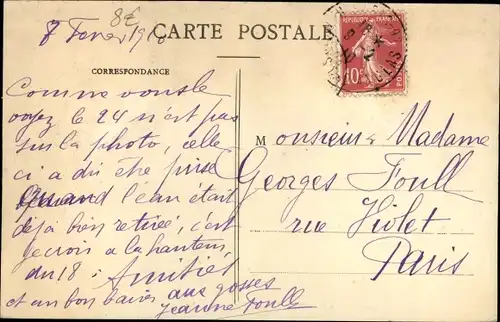 8€
CARTE POSTALE
7 Fevrier
CORRESPONDANCE
REPUBLIQUE FRANÇAISE
10c
Comme vous le
voyez le 24 n'est pas
sur la photo, celle
ci a dû être prise
Quand l'eau était
déjà bien retirée, c'est
je crois a la hauteur
du 18. Amitiés
et un bon baiser aux gosses
Jeanne Foull
Monsieur Madame
Georges Foull
rue Violet
Paris